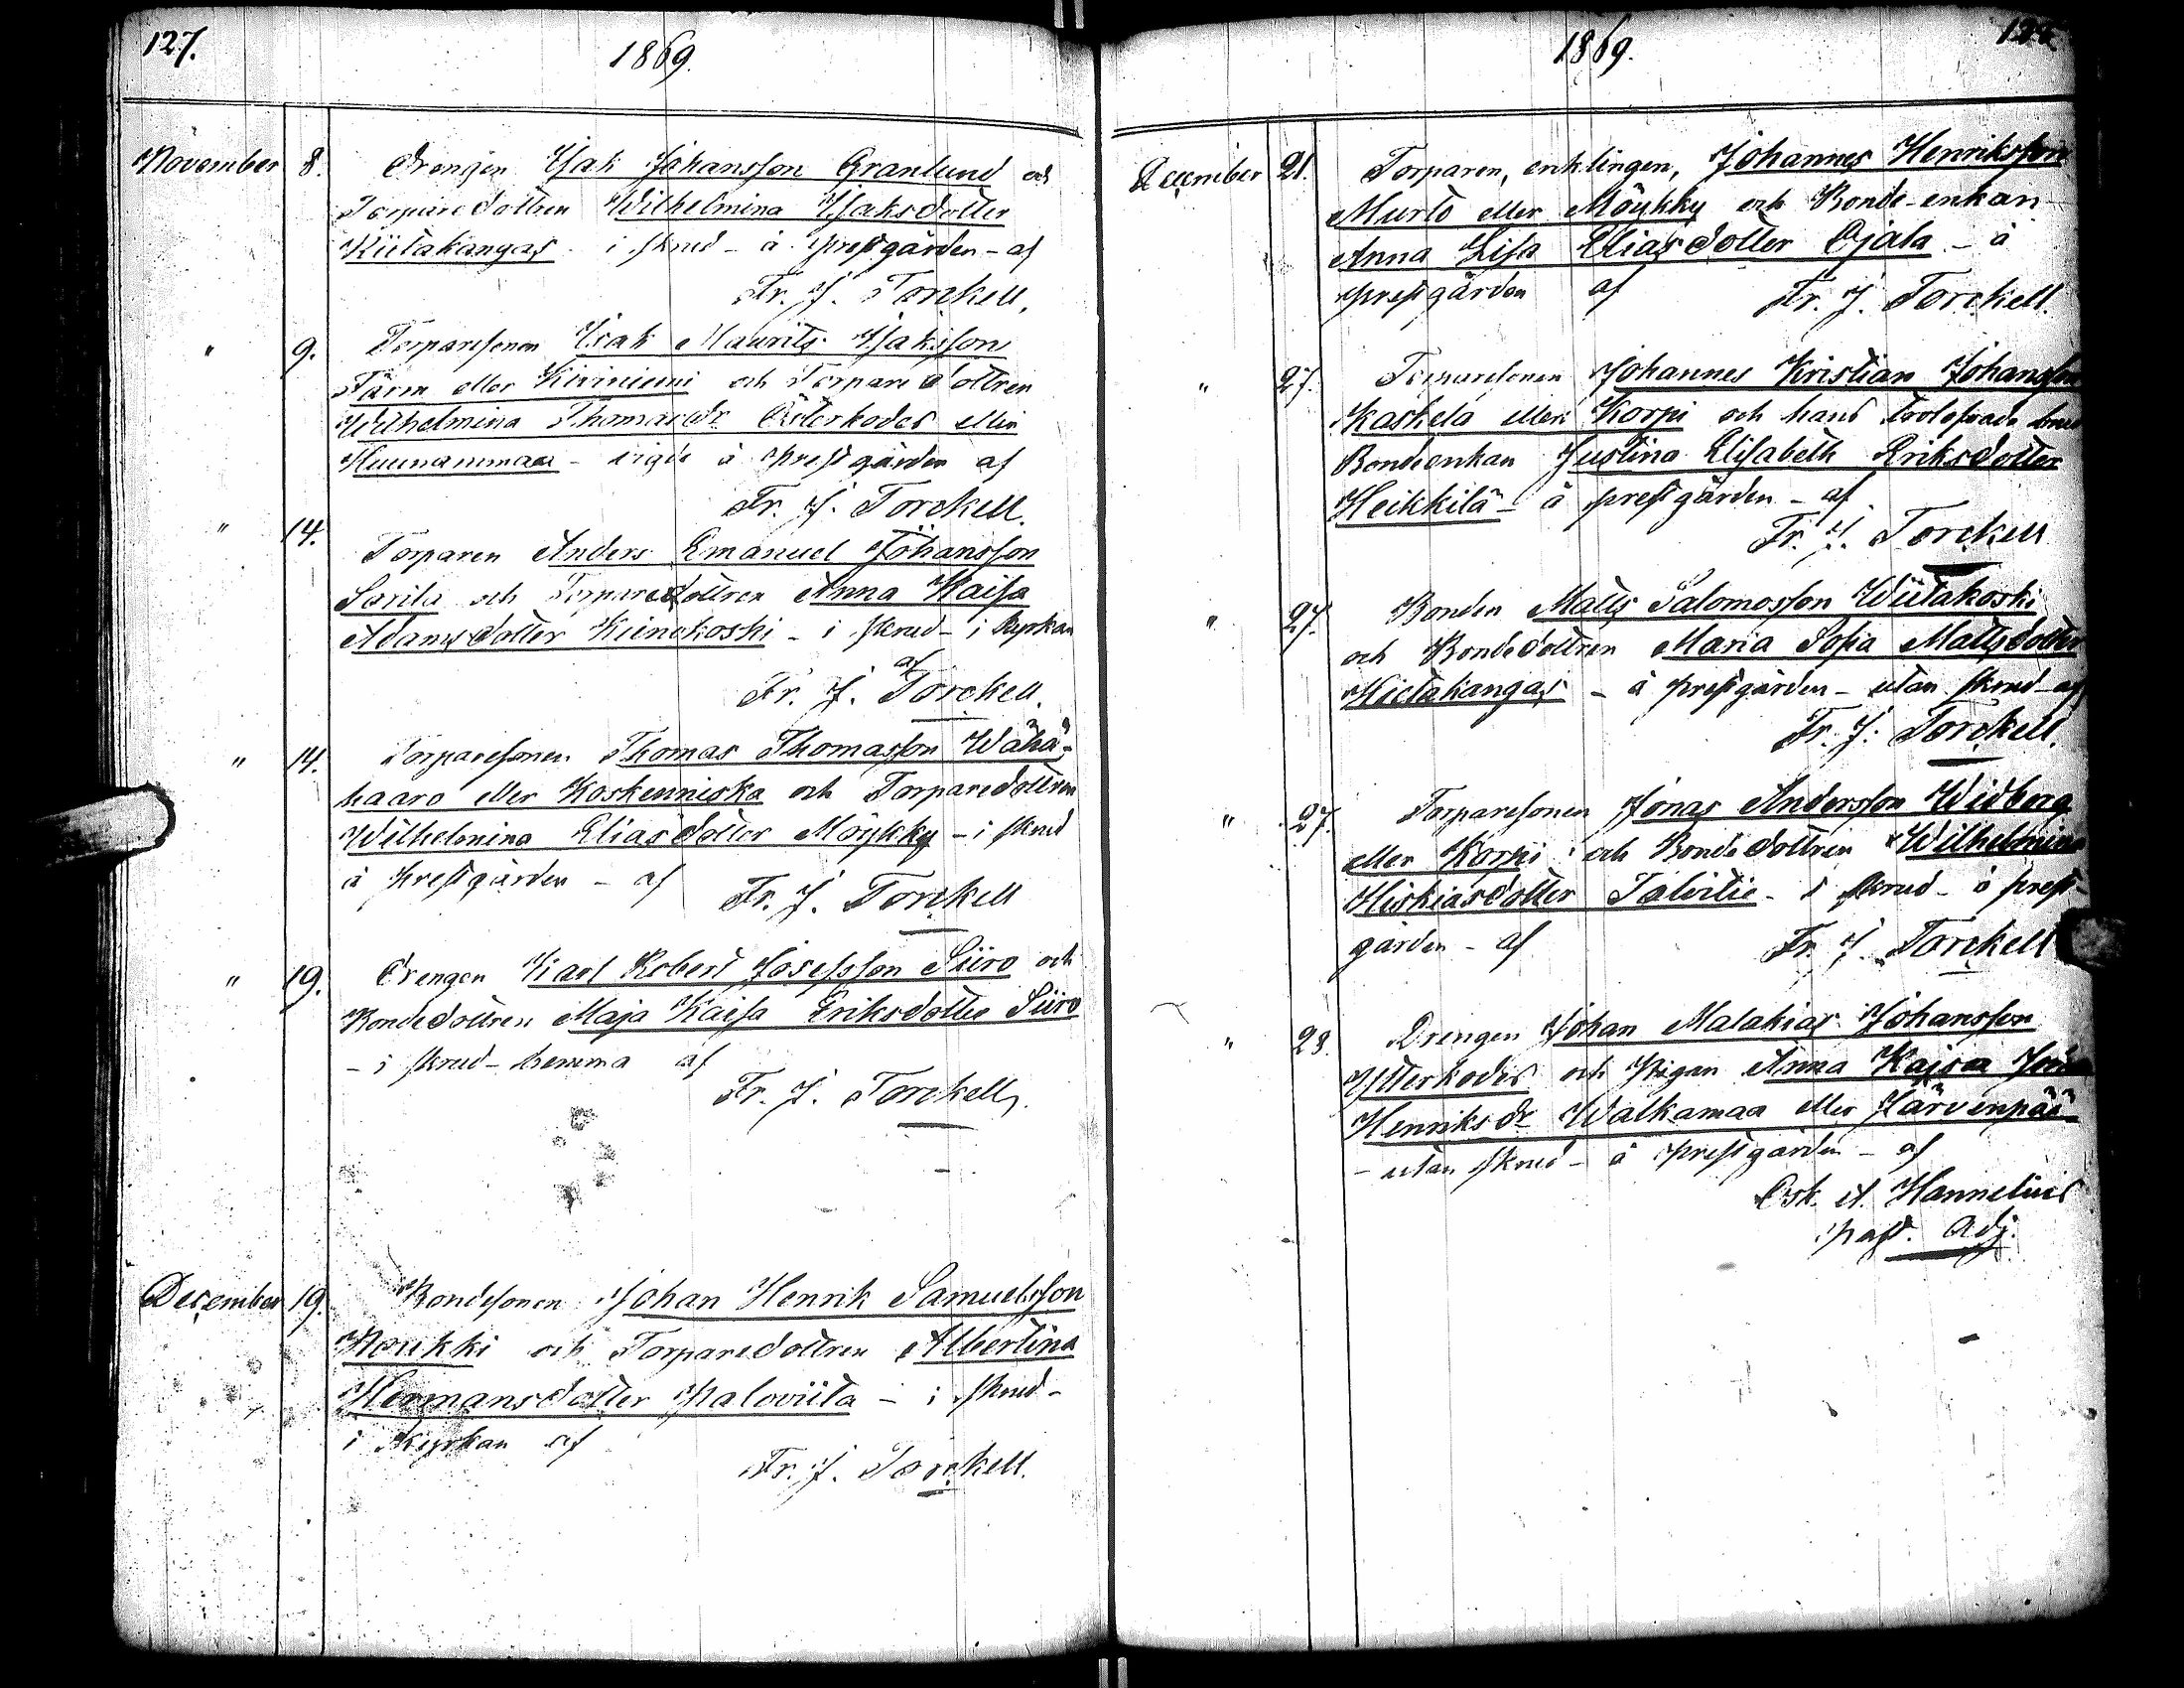 127.
1869.
November 8. Drengen Isak Johansson Granlund och
Torparedottren Wilhelmina Isaksdotter
Kiitakangas i skrud - å prestgården - af
Fr. J. Torckell.
" 9. Torparesonen Isak Maurits Isaksson
Färm eller Kiviniemi och Torparedottren
Wilhelmina Thomasdr Österkodes eller
Huunammaa - vigde å prestgården af
Fr. J. Torckell.
" 14. Torparen Anders Emanuel Johansson
Sarita och Torparedottren Anna Kaisa
Adamsdotter Keinokoski - i skrud - i kyrkan
af
Fr. J. Torckell.
" 14. Torparesonen Thomas Thomasson Wähä-
haaro eller Koskenniska och Torparedottren
Wilhelmina Eliasdotter Möykky - i skrud
å prestgården - af Fr. J. Torckell
" 19. Drengen Karl Robert Josefsson Siiro och
Bondedottren Maja Kaisa Eriksdotter Siiro
- i skrud - hemma af
Fr. J. Torckell.
December 19. Bondesonen Johan Henrik Samuelsson
Houkki och Torparedottren Albertina
Hermansdotter Paloviita - i skrud -
i kyrkan af
Fr. J. Torckell.
1869.
December 21. Torparen, enklingen, Johannes Henriksson
Murto eller Möykky och Bonde-enkan
Anna Lisa Eliasdotter Ojala - å
prestgården af Fr. J. Torckell.
" 27. Torparesonen Johannes Kristian Johansson
Kaskela eller Korpi och hans trolofvade brud
Bondeenkan Justina Elisabeth Eriksdotter
Heikkilä - å prestgården - af
Fr. J. Torckell
" 27. Bonden Matts Salomosson Wiitakoski
och Bondedottren Maria Sofia Mattsdotter
Hietakangas - å prestgården - utan skrud - af
Fr. J. Torckell.
" 27. Torparesonen Jonas Andersson Widberg
eller Korpi och Bondedottren Wilhelmina
Hiskiasdotter Talvitie - i skrud - å prest-
gården - af Fr. J. Torckell
" 28. Drengen Johan Malakias Johansson
Ytterkodes och Pigan Anna Kajsa
Henriksdr Walkamaa eller Järvenpää
- utan skrud - å prestgården - af
Osk. A. Hannelius
past. Adj.